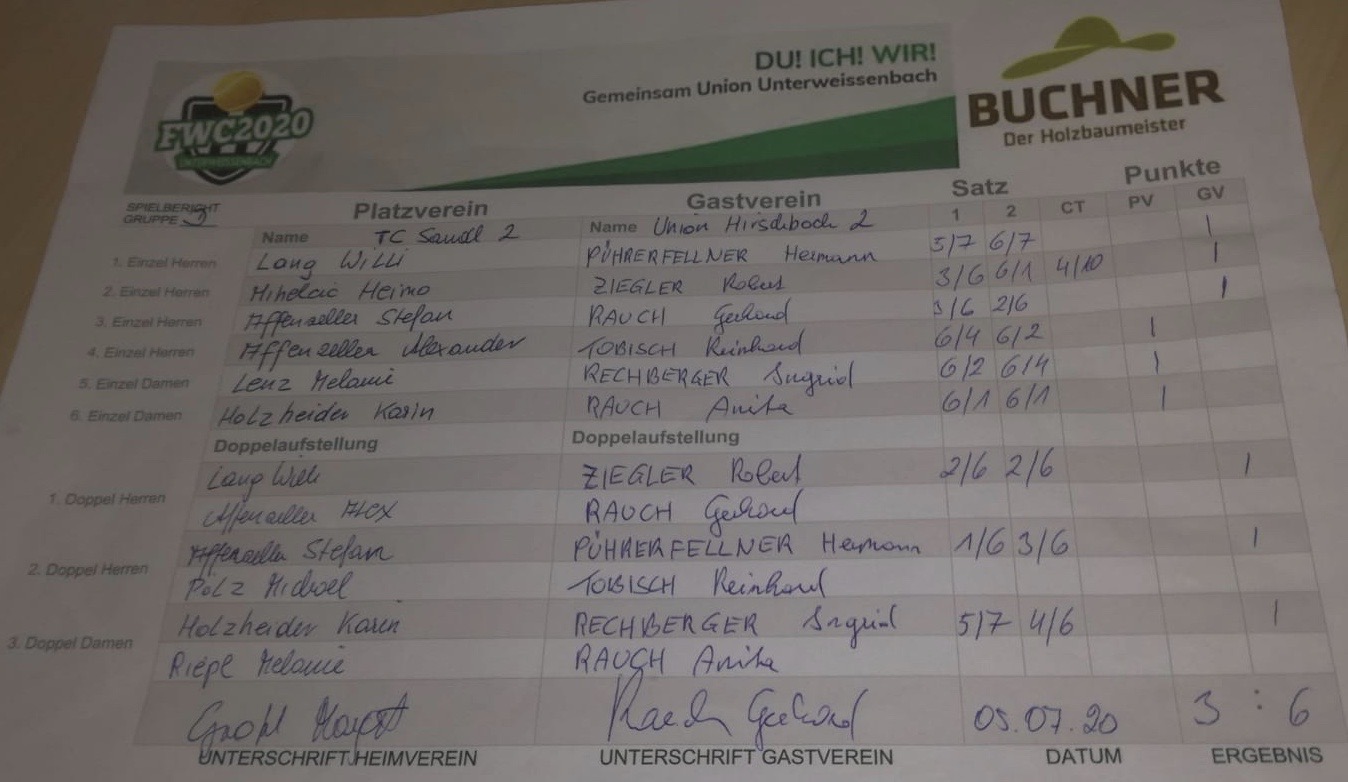 DU! ICH! WIR!
Gemeinsam Union Unterweissenbach
BUCHNER
Der Holzbaumeister
FWC2020
UNTERWEISSENBACH
SPIELBERICHT
GRUPPE 3
Platzverein Gastverein Satz Punkte
1 2 CT PV GV
Name TC Sandl 2 Name Union Hirschbach 2
1. Einzel Herren Lang Willi PÜHRERFELLNER Hermann 5/7 6/7 1
2. Einzel Herren Mihelcic Heimo ZIEGLER Robert 3/6 6/1 4/10 1
3. Einzel Herren Affenzeller Stefan RAUCH Gerhard 3/6 2/6 1
4. Einzel Herren Affenzeller Alexander TOBISCH Reinhard 6/4 6/2 1
5. Einzel Damen Lenz Melanie RECHBERGER Ingrid 6/2 6/4 1
6. Einzel Damen Holzheider Karin RAUCH Anita 6/1 6/1 1
Doppelaufstellung Doppelaufstellung
1. Doppel Herren Lang Willi ZIEGLER Robert 2/6 2/6 1
Affenzeller Alex RAUCH Gerhard
2. Doppel Herren Affenzeller Stefan PÜHRERFELLNER Hermann 1/6 3/6 1
Pölz Michael TOBISCH Reinhard
3. Doppel Damen Holzheider Karin RECHBERGER Ingrid 5/7 4/6 1
Riepl Melanie RAUCH Anita
Rauch Gerhard 05.07.20 3 : 6
UNTERSCHRIFT HEIMVEREIN UNTERSCHRIFT GASTVEREIN DATUM ERGEBNIS